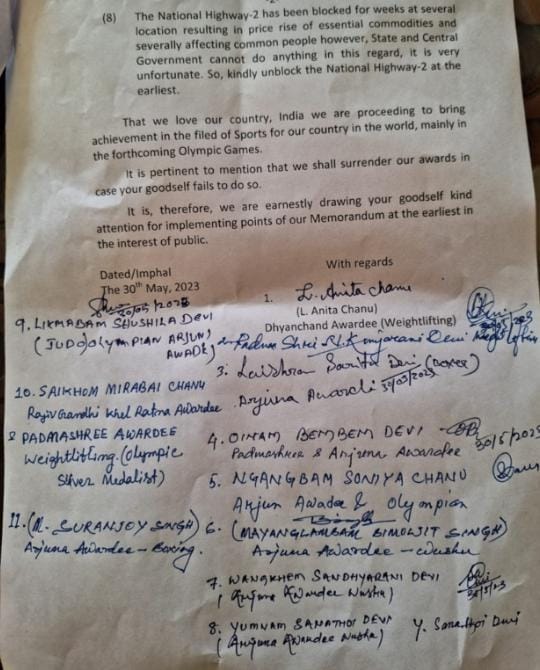 -2-
(8) The National Highway-2 has been blocked for weeks at several
location resulting in price rise of essential commodities and
severally affecting common people however, State and Central
Government cannot do anything in this regard, it is very
unfortunate. So, kindly unblock the National Highway-2 at the
earliest.
That we love our country, India we are proceeding to bring
achievement in the filed of Sports for our country in the world, mainly in
the forthcoming Olympic Games.
It is pertinent to mention that we shall surrender our awards in
case your goodself fails to do so.
It is, therefore, we are earnestly drawing your goodself kind
attention for implementing points of our Memorandum at the earliest in
the interest of public.
Dated/Imphal
The 30th May, 2023
With regards
1. L. Anita Chanu
(L. Anita Chanu)
Dhyanchand Awardee (Weightlifting)
2. Padma Shri N. Kunjarani Devi
3. Laishram Sarita Devi (Boxer)
Arjuna Awardee 30/05/2023
4. OINAM BEMBEM DEVI
Padmashree & Arjuna Awardee 30/5/2023
5. NGANGBAM SONIYA CHANU
Arjun Awadee & Olympian
6. (MAYANGLAMBAM BIMOLJIT SINGH)
Arjuna Awardee - Wushu
7. WANGKHEM SANDHYARANI DEVI
(Arjuna Awardee Wushu)
30/5/23
8. YUMNAM SANATHOI DEVI
(Arjuna Awardee Wushu)
Y. Sanathoi Devi
30/05/2023
9. LIKMABAM SHUSHILA DEVI
(JUDO) OLYMPIAN ARJUN
AWADE)
10. SAIKHOM MIRABAI CHANU
Rajiv Gandhi Khel Ratna Awardee
& PADMASHREE AWARDEE
Weightlifting. (Olympic
Silver Medalist)
11. (M. SURANJOY SINGH)
Arjuna Awardee - Boxing.